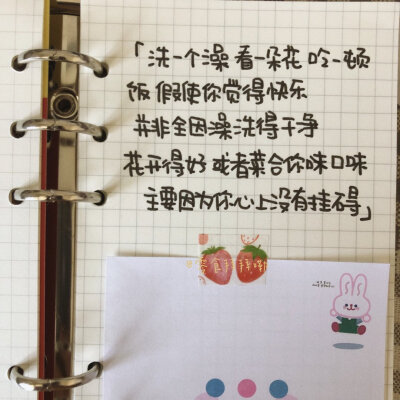 「洗一个澡 看一朵花 吃一顿
饭 假使你觉得快乐
并非全因澡洗得干净
花开得好 或者菜合你咪口味
主要因为你心上没有挂碍」